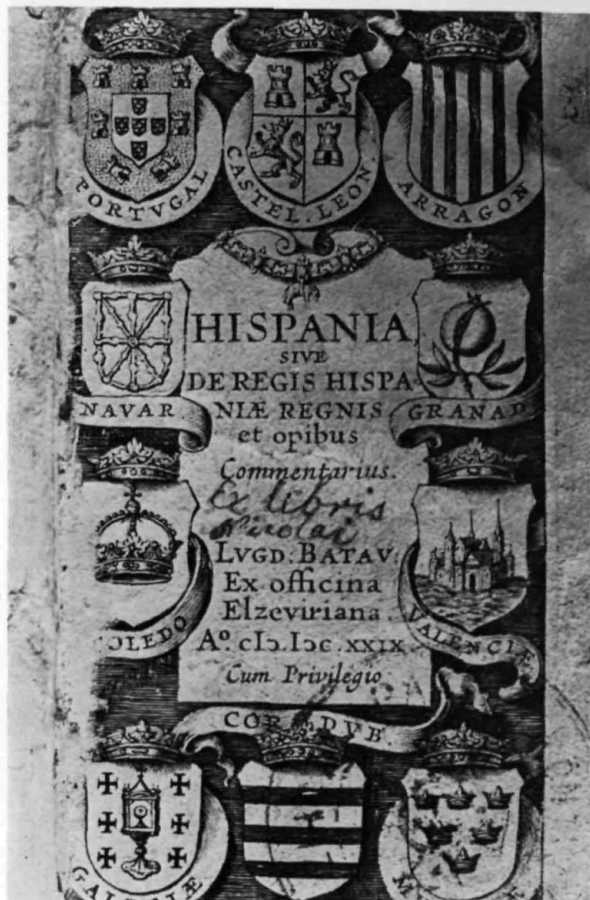 PORTVGAL
CASTEL. LEON.
ARRAGON
HISPANIA,
SIVE
DE REGIS HISPA-
NIÆ REGNIS
et opibus
Commentarius.
NAVAR.
GRANAD
Ex libris
Nicolai
LVGD. BATAV.
Ex officina
Elzeviriana.
Aº. cIↄ.Iↄc.XXIX
Cum Privilegio
OLEDO
VALENCIÆ
DVB.